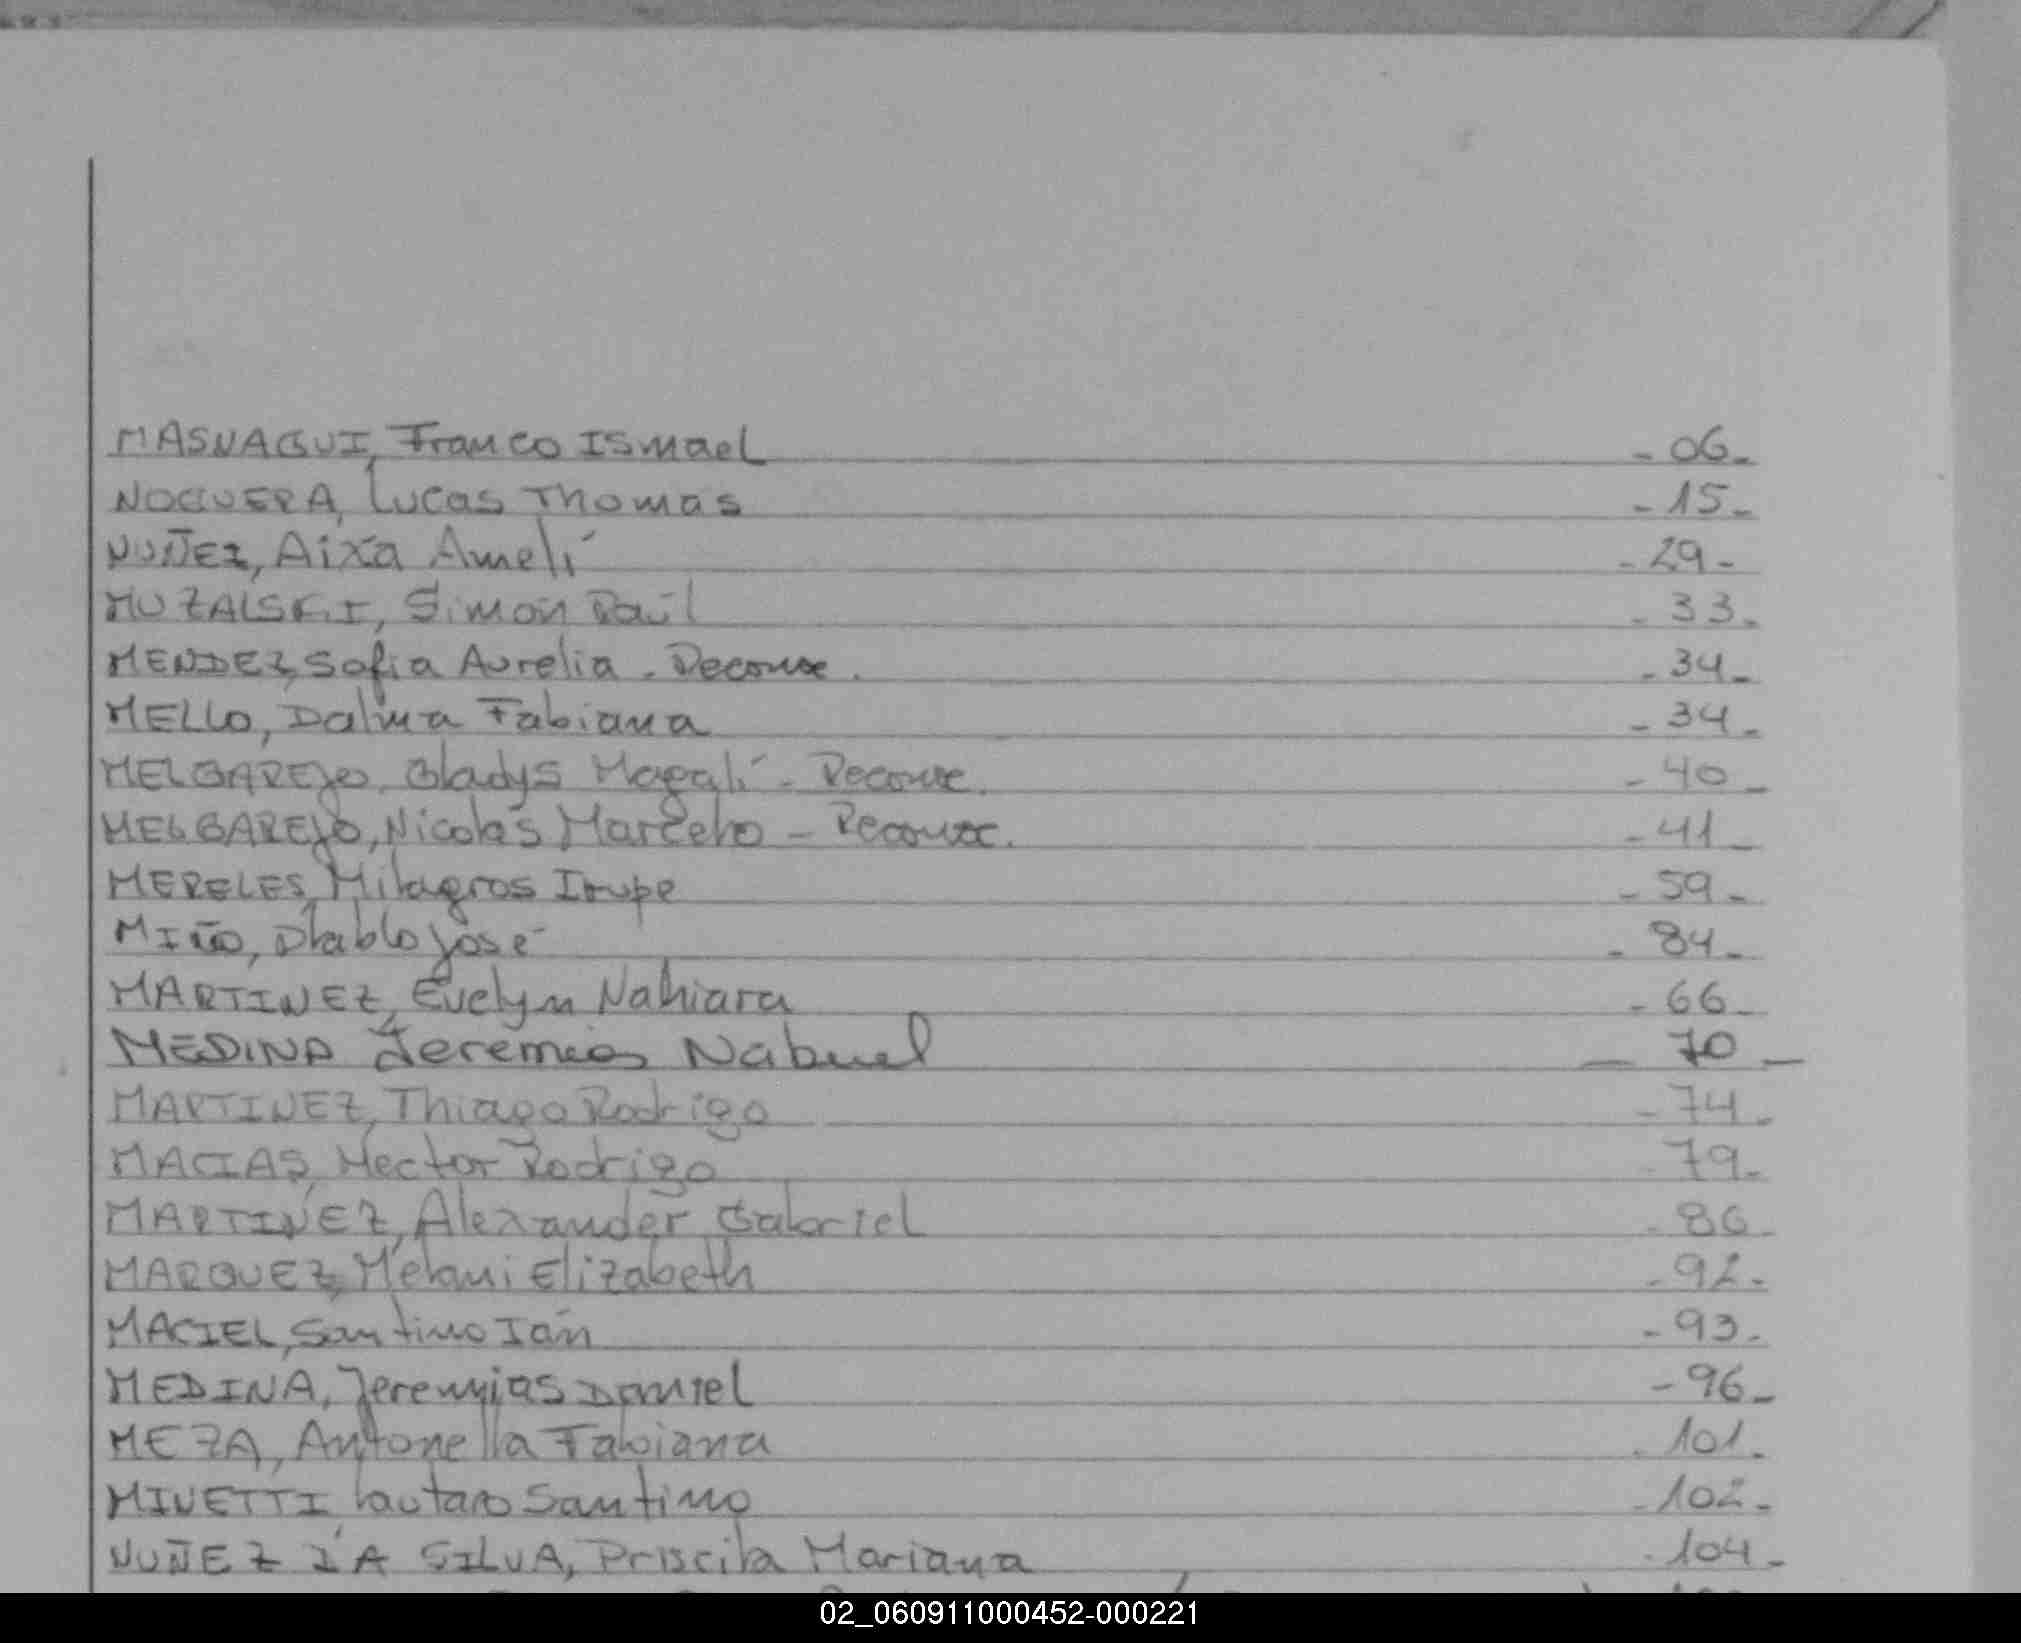 MASNAGUI, Franco Ismael - 06 -
NOGUERA, Lucas Thomas - 15 -
NUÑEZ, Aixa Amelí - 29 -
MUZALSKI, Simón Raúl - 33 -
MENDEZ, Sofia Aurelia - Reconoc. - 34 -
MELLO, Dalma Fabiana - 34 -
MELGAREJO, Gladys Magalí - Reconoc. - 40 -
MELGAREJO, Nicolás Marcelo - Reconoc. - 41 -
MERELES, Milagros Irupe - 59 -
MIÑO, Pablo José - 84 -
MARTINEZ, Evelyn Nahiara - 66 -
MEDINA Jeremias Nahuel - 70 -
MARTINEZ, Thiago Rodrigo - 74 -
MACIAS, Hector Rodrigo - 79 -
MARTINEZ, Alexander Gabriel - 86 -
MARQUEZ, Melani Elizabeth - 92 -
MACIEL, Santino Ián - 93 -
MEDINA, Jeremias Daniel - 96 -
MEZA, Antonella Fabiana - 101 -
MINETTI, Lautaro Santino - 102 -
NUÑEZ DA SILVA, Priscila Mariana - 104 -
02_060911000452-000221